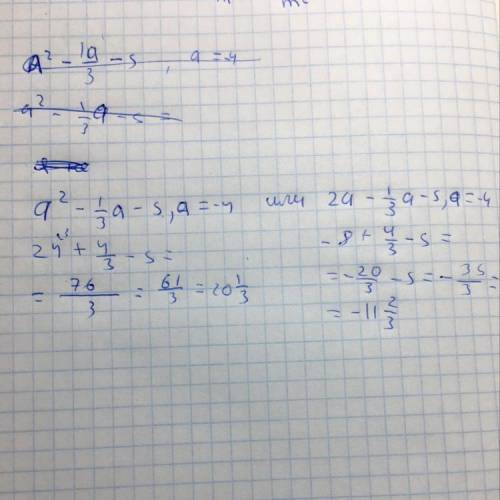 a² - 1a/3 - 5, a = -4
a² - 1/3 a - 5 =
a² - 1/3 a - 5, a = -4 или 2a - 1/3 a - 5, a = -4
+ 4/3 - 5 = - 8 + 4/3 - 5 =
= 76/3 = 61/3 = 20 1/3 = - 20/3 - 5 = - 35/3 =
= - 11 2/3